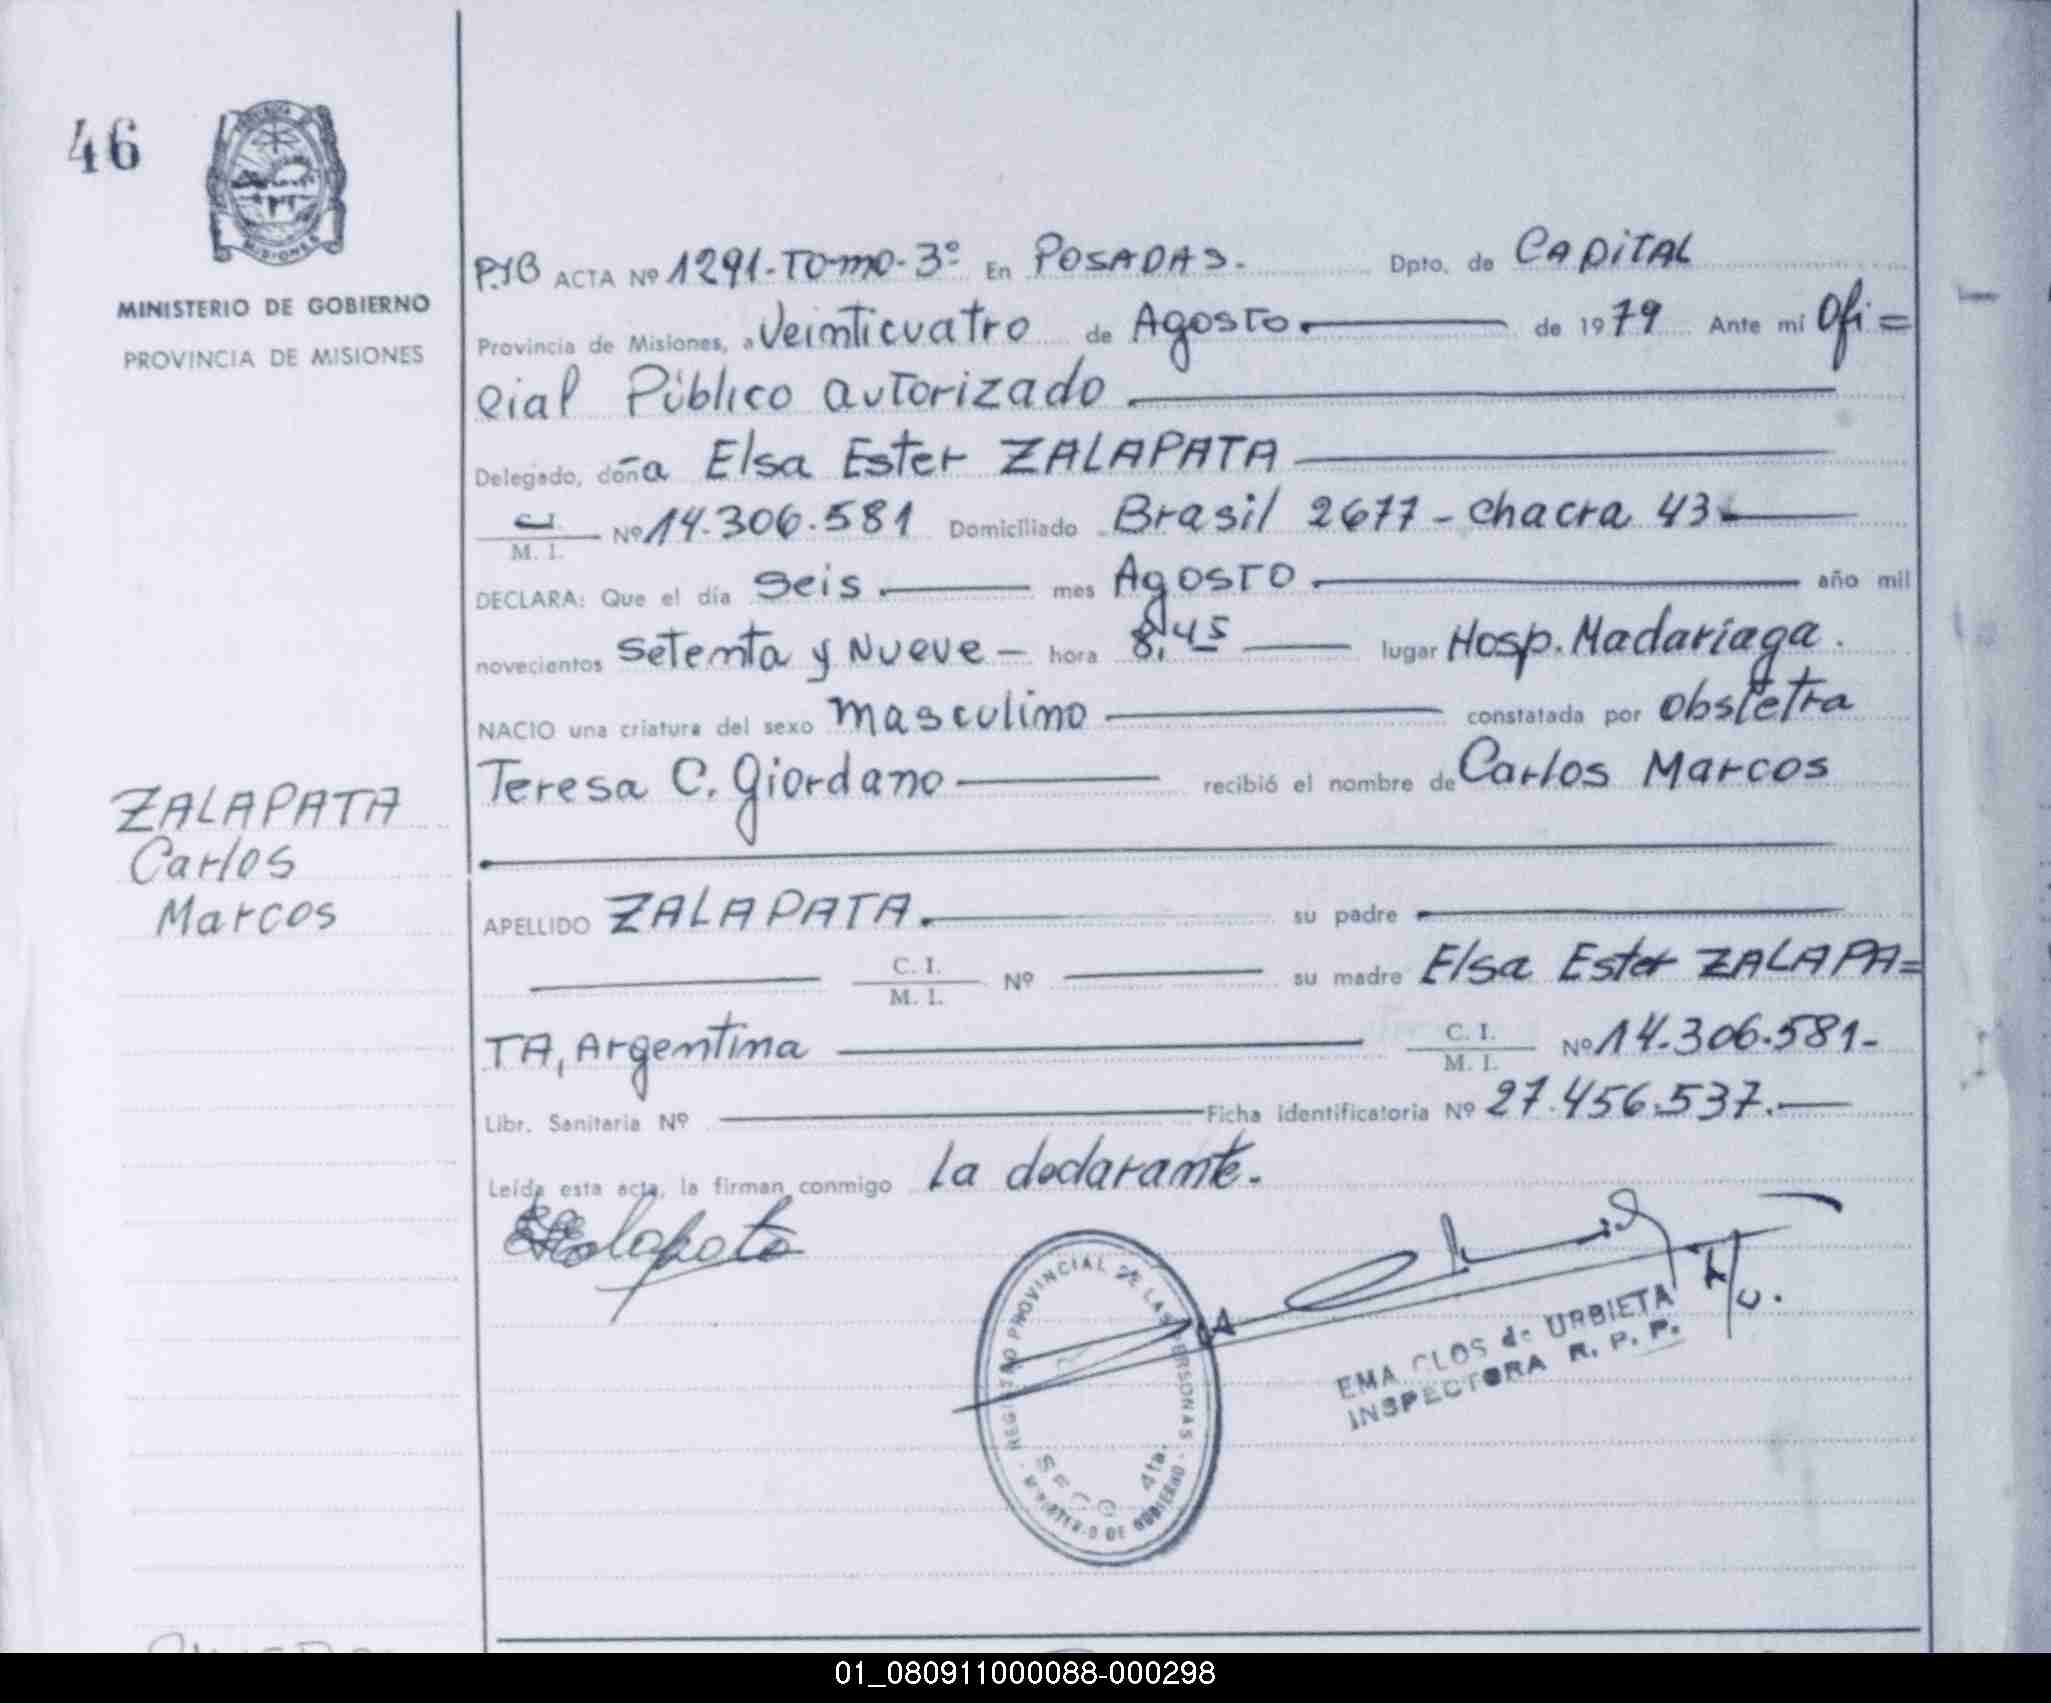 46
MINISTERIO DE GOBIERNO
PROVINCIA DE MISIONES
ACTA Nº 1291-Tomo-3º En POSADAS. Dpto. de CAPITAL
Provincia de Misiones, a Veinticuatro de Agosto de 1979 Ante mi Ofi=
cial Público autorizado
Delegado, doña Elsa Ester ZALAPATA
C. I.
M. I. Nº 14.306.581 Domiciliado Brasil 2677 - Chacra 43
DECLARA: Que el día Seis. mes Agosto año mil
novecientos Setenta y Nueve - hora 8,45 lugar Hosp. Madariaga.
NACIO una criatura del sexo Masculino constatada por Obstetra
Teresa C. Giordano recibió el nombre de Carlos Marcos
ZALAPATA
Carlos
Marcos
APELLIDO ZALAPATA. su padre
C. I.
M. I. Nº su madre Elsa Ester ZALAPA=
TA, Argentina C. I.
M. I. Nº 14.306.581-
Libr. Sanitaria Nº Ficha identificatoria Nº 27.456.537.
Leída esta acta, la firman conmigo la declarante.
REGISTRO PROVINCIAL DE LAS PERSONAS
MINISTERIO DE GOBIERNO
SECC. 4ta.
EMA CLOS de URBIETA
INSPECTORA R. P. P.
01_080911000088-000298